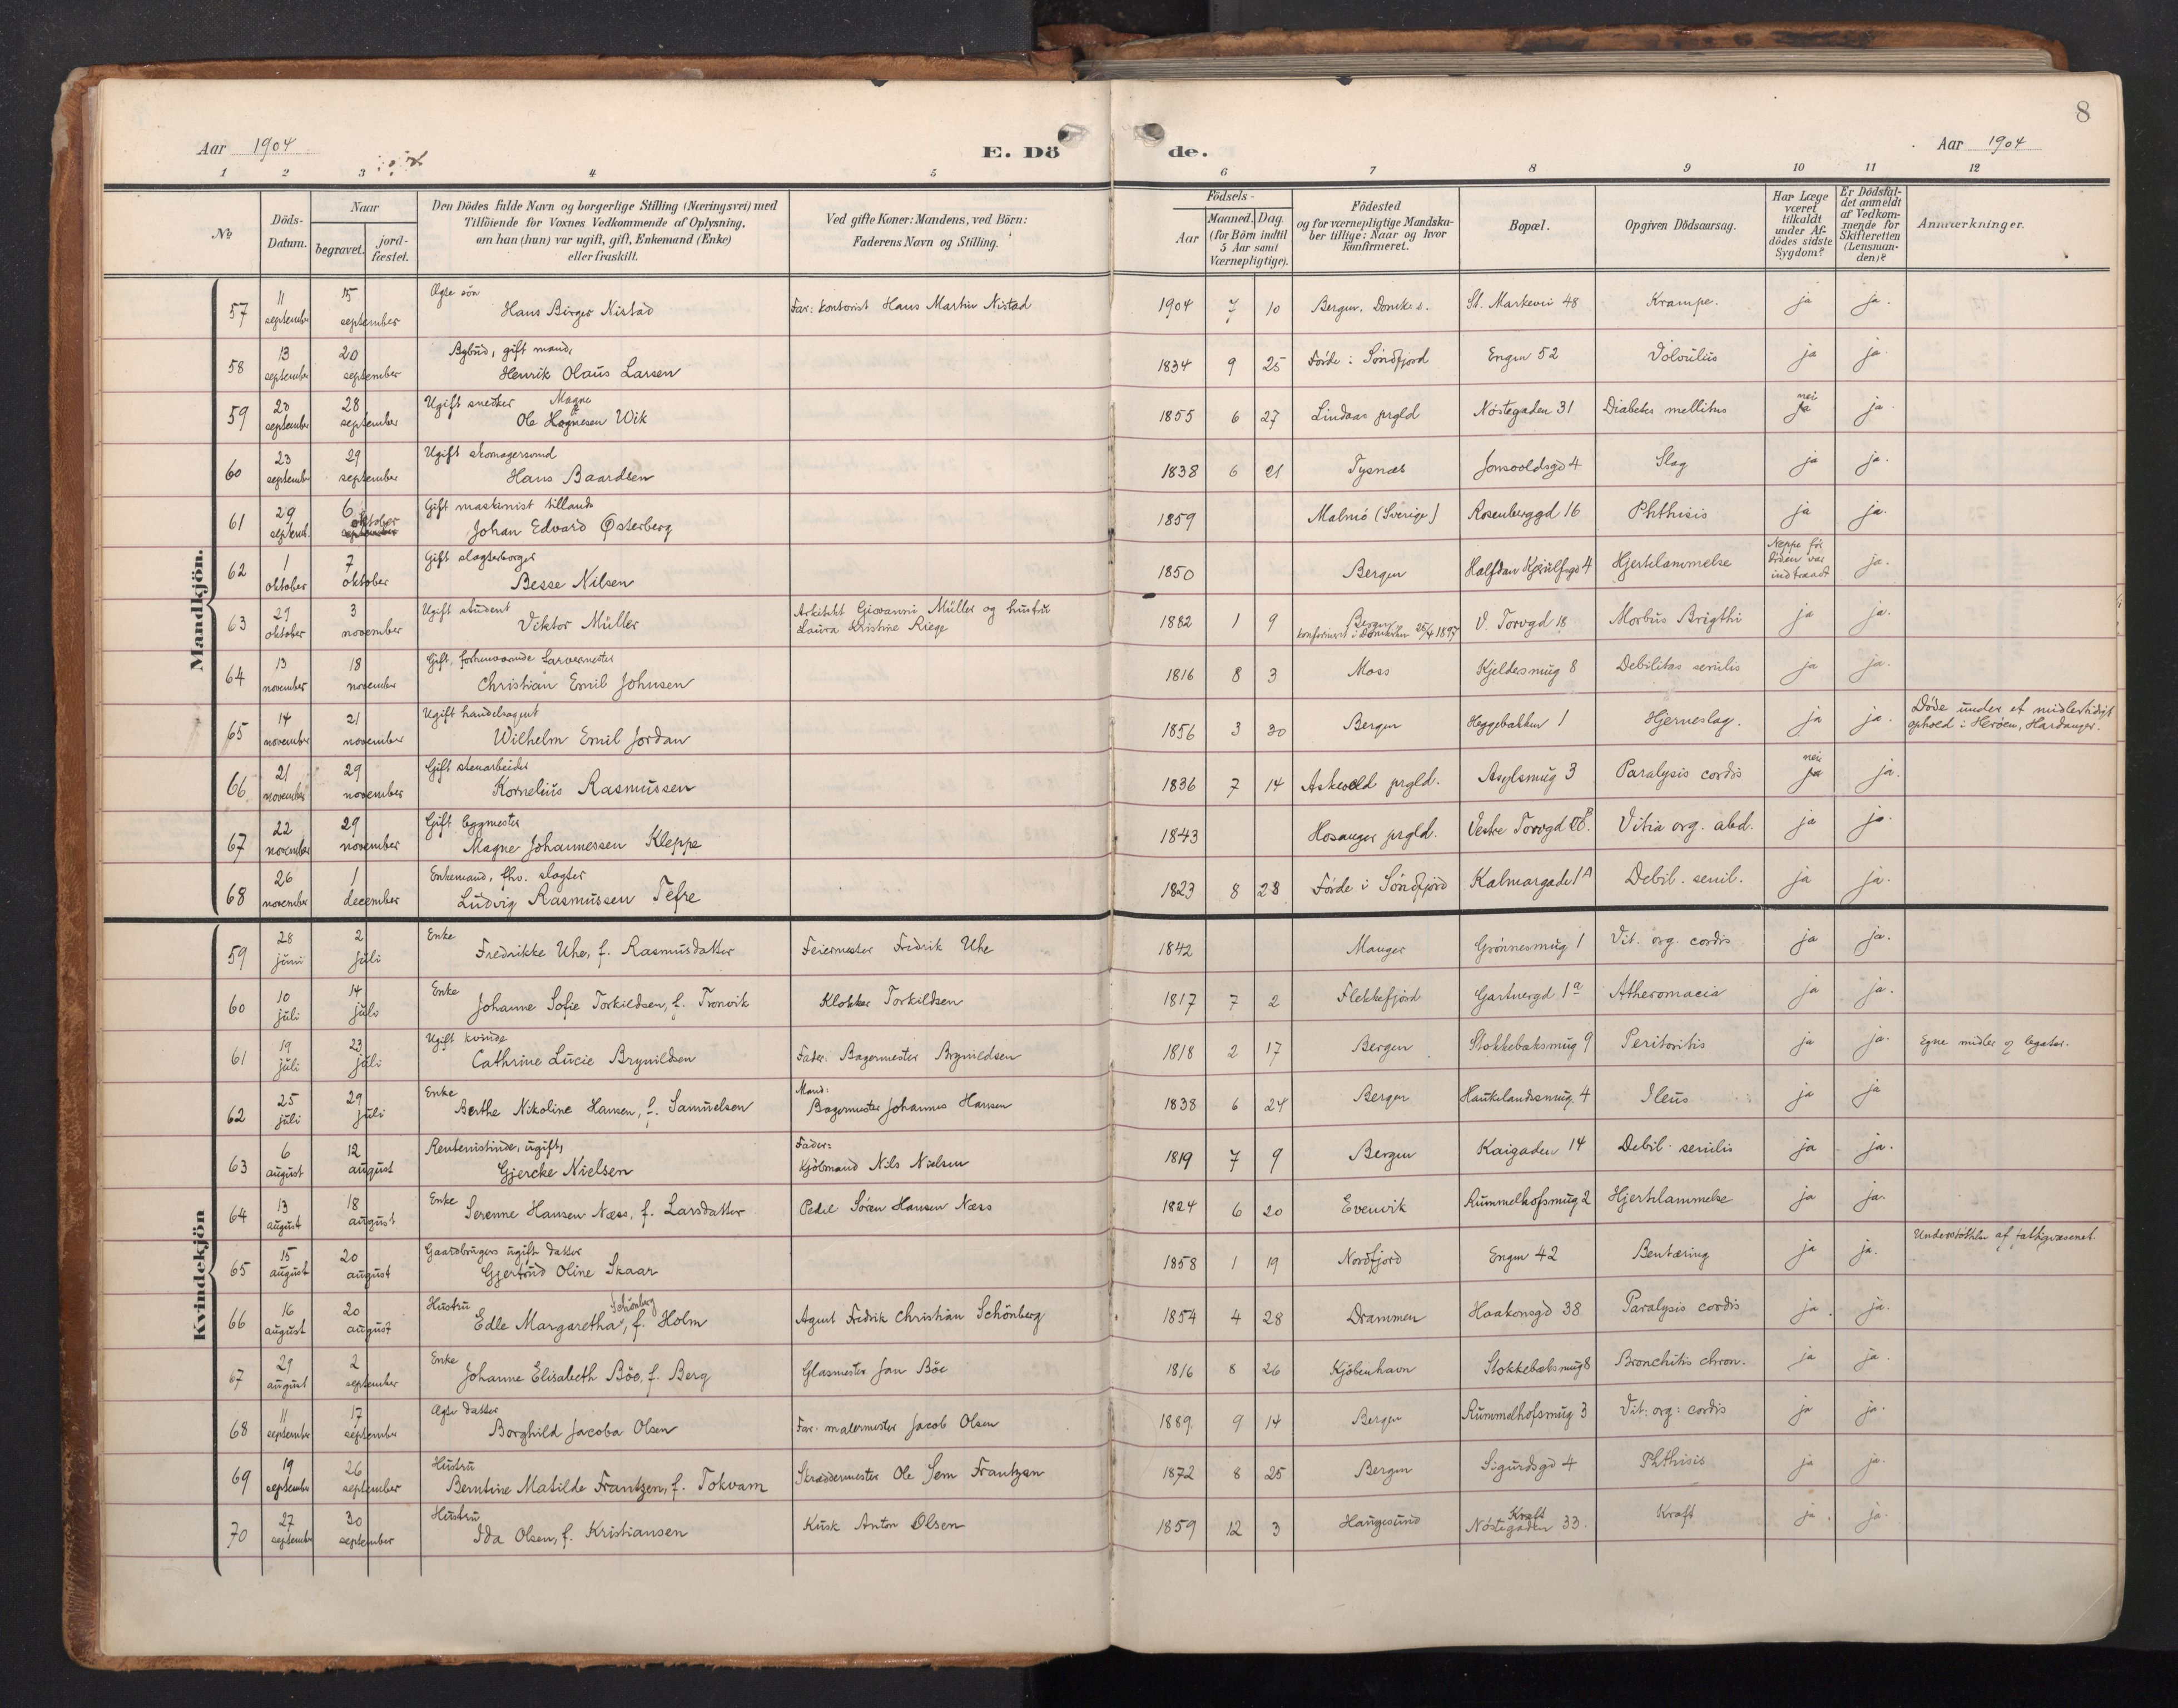 8
Aar 1904
E. Dö
de.
Aar 1904
1 2 3 4 5 6 7 8 9 10 11 12
№
Döds-
Datum.
Naar
begravet.
jord-
fæstet.
Den Dödes fulde Navn og borgerlige Stilling (Næringsvei) med
Tilföiende for Voxnes Vedkommende af Oplysning,
om han (hun) var ugift, gift, Enkemand (Enke)
eller fraskilt.
Ved gifte Koner: Mandens, ved Börn:
Faderens Navn og Stilling.
Födsels-
Aar
Maaned. Dag.
(for Börn indtil
5 Aar samt
Værnepligtige).
Födested
og for værnepligtige Mandska-
ber tillige: Naar og hvor
konfirmeret.
Bopæl.
Opgiven Dödsaarsag.
Har Læge
været
tilkaldt
under Af-
dödes sidste
Sygdom?
Er Dödsfal-
det anmeldt
af Vedkom-
mende for
Skifteretten
(Lensman-
den)?
Anmærkninger.
Mandkjön.
57 11 september 15 september Ægte søn
Hans Birger Nistad Far: kontorist Hans Martin Nistad 1904 7 10 Bergen, Domk. s. St. Markevei 48 Krampe. ja ja.
58 13 september 20 september Bybud, gift mand,
Henrik Olaus Larsen 1834 9 25 Førde i Søndfjord Engen 52 Volvulus ja ja
59 20 september 28 september Ugift snedker Magne
Ole Hognesen Wik 1855 6 27 Lindaas prgld Nøstegaden 31 Diabetes mellitus nei ja ja
60 23 september 29 september Ugift skomagersvend
Hans Baardsen 1838 6 21 Tysnæs Jonsvoldsgd 4 Slag ja ja.
61 29 septemb. 6 oktober september Gift maskinist tillands
Johan Edvard Østerberg 1859 Malmö (Sverige) Rosenberggd 16 Phthisis ja ja.
62 1 oktober 7 oktober Gift slagterborger
Besse Nilsen 1850 Bergen Halfdan Kjerulfsgd 4 Hjertelammelse Neppe før døden var indtraadt ja.
63 29 oktober 3 november Ugift student
Viktor Müller Arkitekt Giovanni Müller og hustru
Laura Kristine Riege 1882 1 9 Bergen
konfirmeret i Domkirken 25/4 1897 V. Torvgd 18 Morbus Brigthi ja ja.
64 13 november 18 november Gift, forhenværende farvermester
Christian Emil Johnsen 1816 8 3 Moss Kjeldersmug 8 Debilitas senilis ja ja.
65 14 november 21 november Ugift handelsagent
Wilhelm Emil Jordan 1856 3 30 Bergen Heggebakken 1 Hjerneslag. ja ja. Døde under et midlertidigt
ophold i Herøen, Hardanger.
66 21 november 29 november Gift stenarbeider
Kornelius Rasmussen 1836 7 14 Askevold prgld. Asylsmug 3 Paralysis cordis nei ja ja.
67 22 november 29 november Gift bygmester
Magne Johannessen Kleppe 1843 Hosanger prgld. Vestre Torvgd Vitia org. abd. ja ja.
68 26 november 1 december Enkemand, fhv. slagter
Ludvig Rasmussen Tefre 1823 8 28 Førde i Søndfjord Kalmargade 1A Debil. senil. ja ja.
Kvindekjön
59 28 juni 2 juli Enke
Fredrikke Uhe, f. Rasmusdatter Feiermester Fredrik Uhe 1842 Manger Grønnesmug 1 Vit. org. cordis ja ja.
60 10 juli 14 juli Enke
Johanne Sofie Torkildsen, f. Tronvik Klokker Torkildsen 1817 7 2 Flekkefjord Gartnergd 1a Atheromacia ja ja.
61 19 juli 23 juli Ugift kvinde
Cathrine Lucie Brynildsen Fader. Bagermester Brynildsen 1818 2 17 Bergen Stokkebæksmug 9 Peritonitis ja ja. Egne midler og legater.
62 25 juli 29 juli Enke
Berthe Nikoline Hansen, f. Samuelsen Mand:
Bagermester Johannes Hansen 1838 6 24 Bergen Haukelandsmug. 4 Ileus ja ja
63 6 august 12 august Rentenistinde, ugift,
Gjercke Nielsen Fader:
Kjøbmand Nils Nielsen 1819 7 9 Bergen Kaigaden 14 Debil. senilis ja ja.
64 13 august 18 august Enke
Serenne Hansen Næss, f. Larsdatter Pedel Søren Hansen Næss 1824 6 20 Evenvik Rummelhofsmug 2 Hjertelammelse ja ja.
65 15 august 20 august Gaardbrugers ugift datter
Gjertrud Oline Skaar 1858 1 19 Nordfjord Engen 42 Bentæring ja ja. Understøttelse af fattigvæsenet.
66 16 august 20 august Hustru Schönberg
Edle Margaretha, f. Holm Agent Fredrik Christian Schönberg 1854 4 28 Drammen Haakonsgd 38 Paralysis cordis ja ja.
67 29 august 2 september Enke
Johanne Elisabeth Böe, f. Berg Glasmester Jan Böe 1816 8 26 Kjøbenhavn Stokkebæksmug 8 Bronchitis chron. ja ja.
68 11 september 17 september Ægte datter
Borghild Jacoba Olsen Far. malermester Jacob Olsen 1889. 9 14 Bergen Rummelhofsmug 3 Vit: org: cordis ja ja.
69 19 september 26 september Hustru
Berntine Matilde Frantzen, f. Tokvam Skræddermester Ole Sem Frantzen 1872 8 25 Bergen Sigurdsgd 4 Phthisis ja ja.
70 27 september 30 september Hustru
Ida Olsen, f. Kristiansen Kusk Anton Olsen 1859 12 3 Haugesund Kræft Nøstegaden 33. Kræft ja. ja.